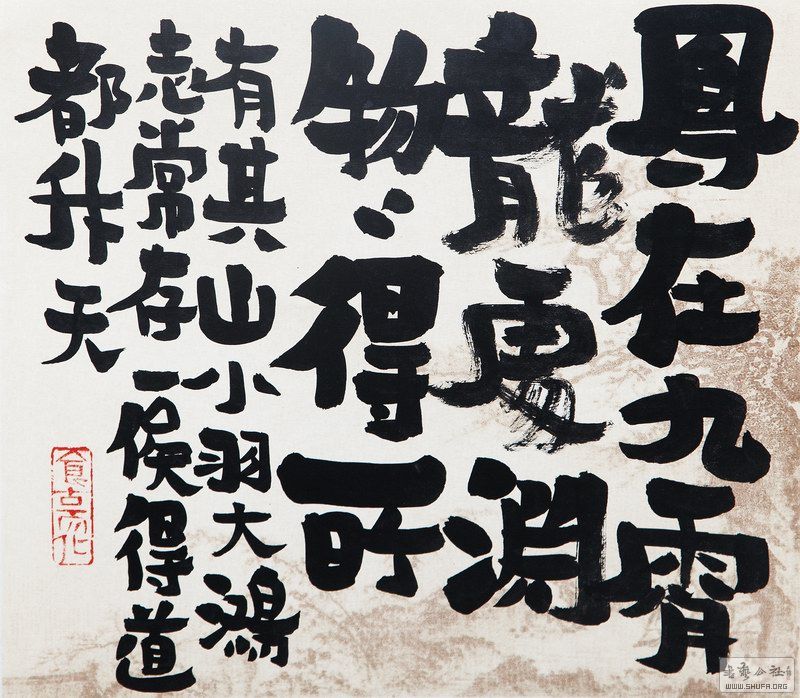 鳳在九霄
龍處淵
物々得所
有其山小羽大鴻
志常存一俟得道
都升天
食古而化
WWW.SHUFA.ORG